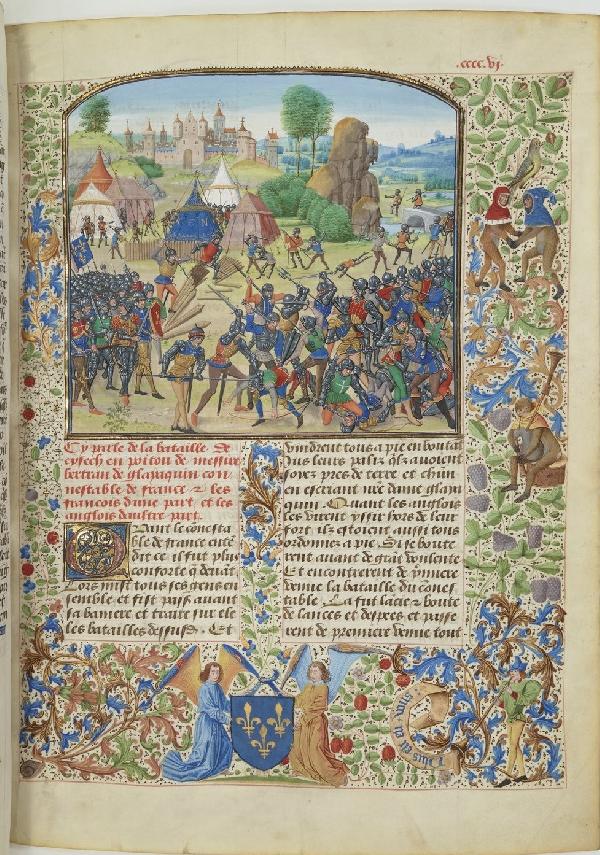 .cccc.vj.
Cy parle de la bataille de
cysech en poitou de messire
bertran de glayaquin con
nestable de france et les
francois dune part. et les
anglois daultre part.
Quant le conesta
ble de france eut
dit ce il fut plus
conforte q̃ deuãt
Lors mist tous ses gens en
semble et fist pass auant
sa baniere et traire sur elle
les batailles dessus. Et
vindrent tous a pie en boutãt
Jus leurs palis qlz auoient
pres de terre et chũn
en escriant nr̃e dame
quin. Quant les anglois
les virent yssir hors de leur
fort. ilz estoient aussi tous
ordonnes a pie. Si se boute
rent auant de grãt voulente
Et encontrerent de p̃miere
venue la bataille du cones
table. La fut lacie et boute
de lances et despees et passe
rent de premiere venue tout